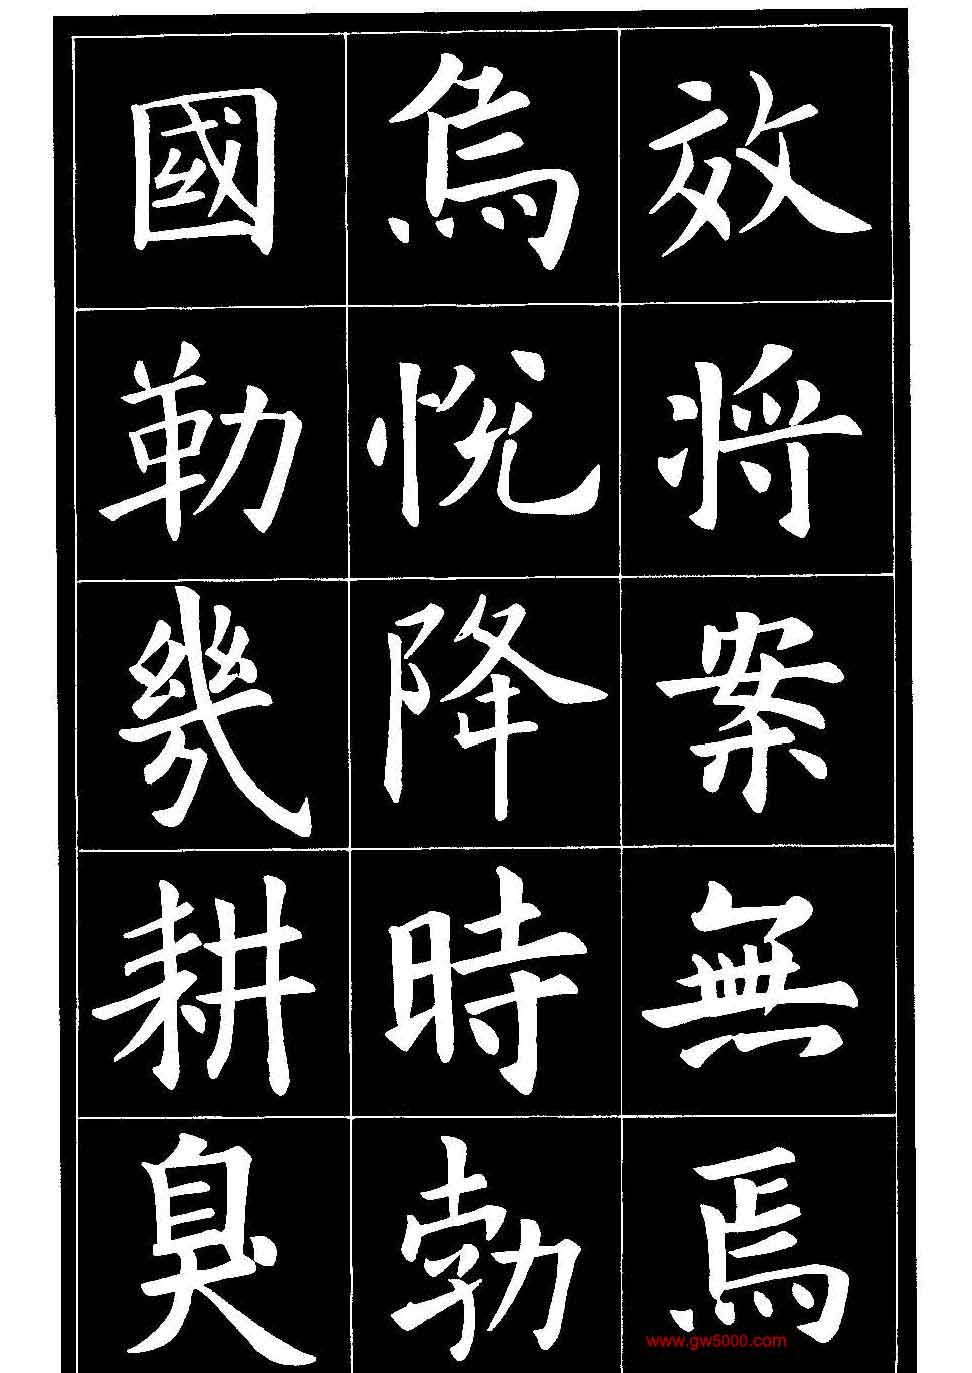 效将案無焉
悦降時勃
國勒幾耕臭
www.gw5000.com